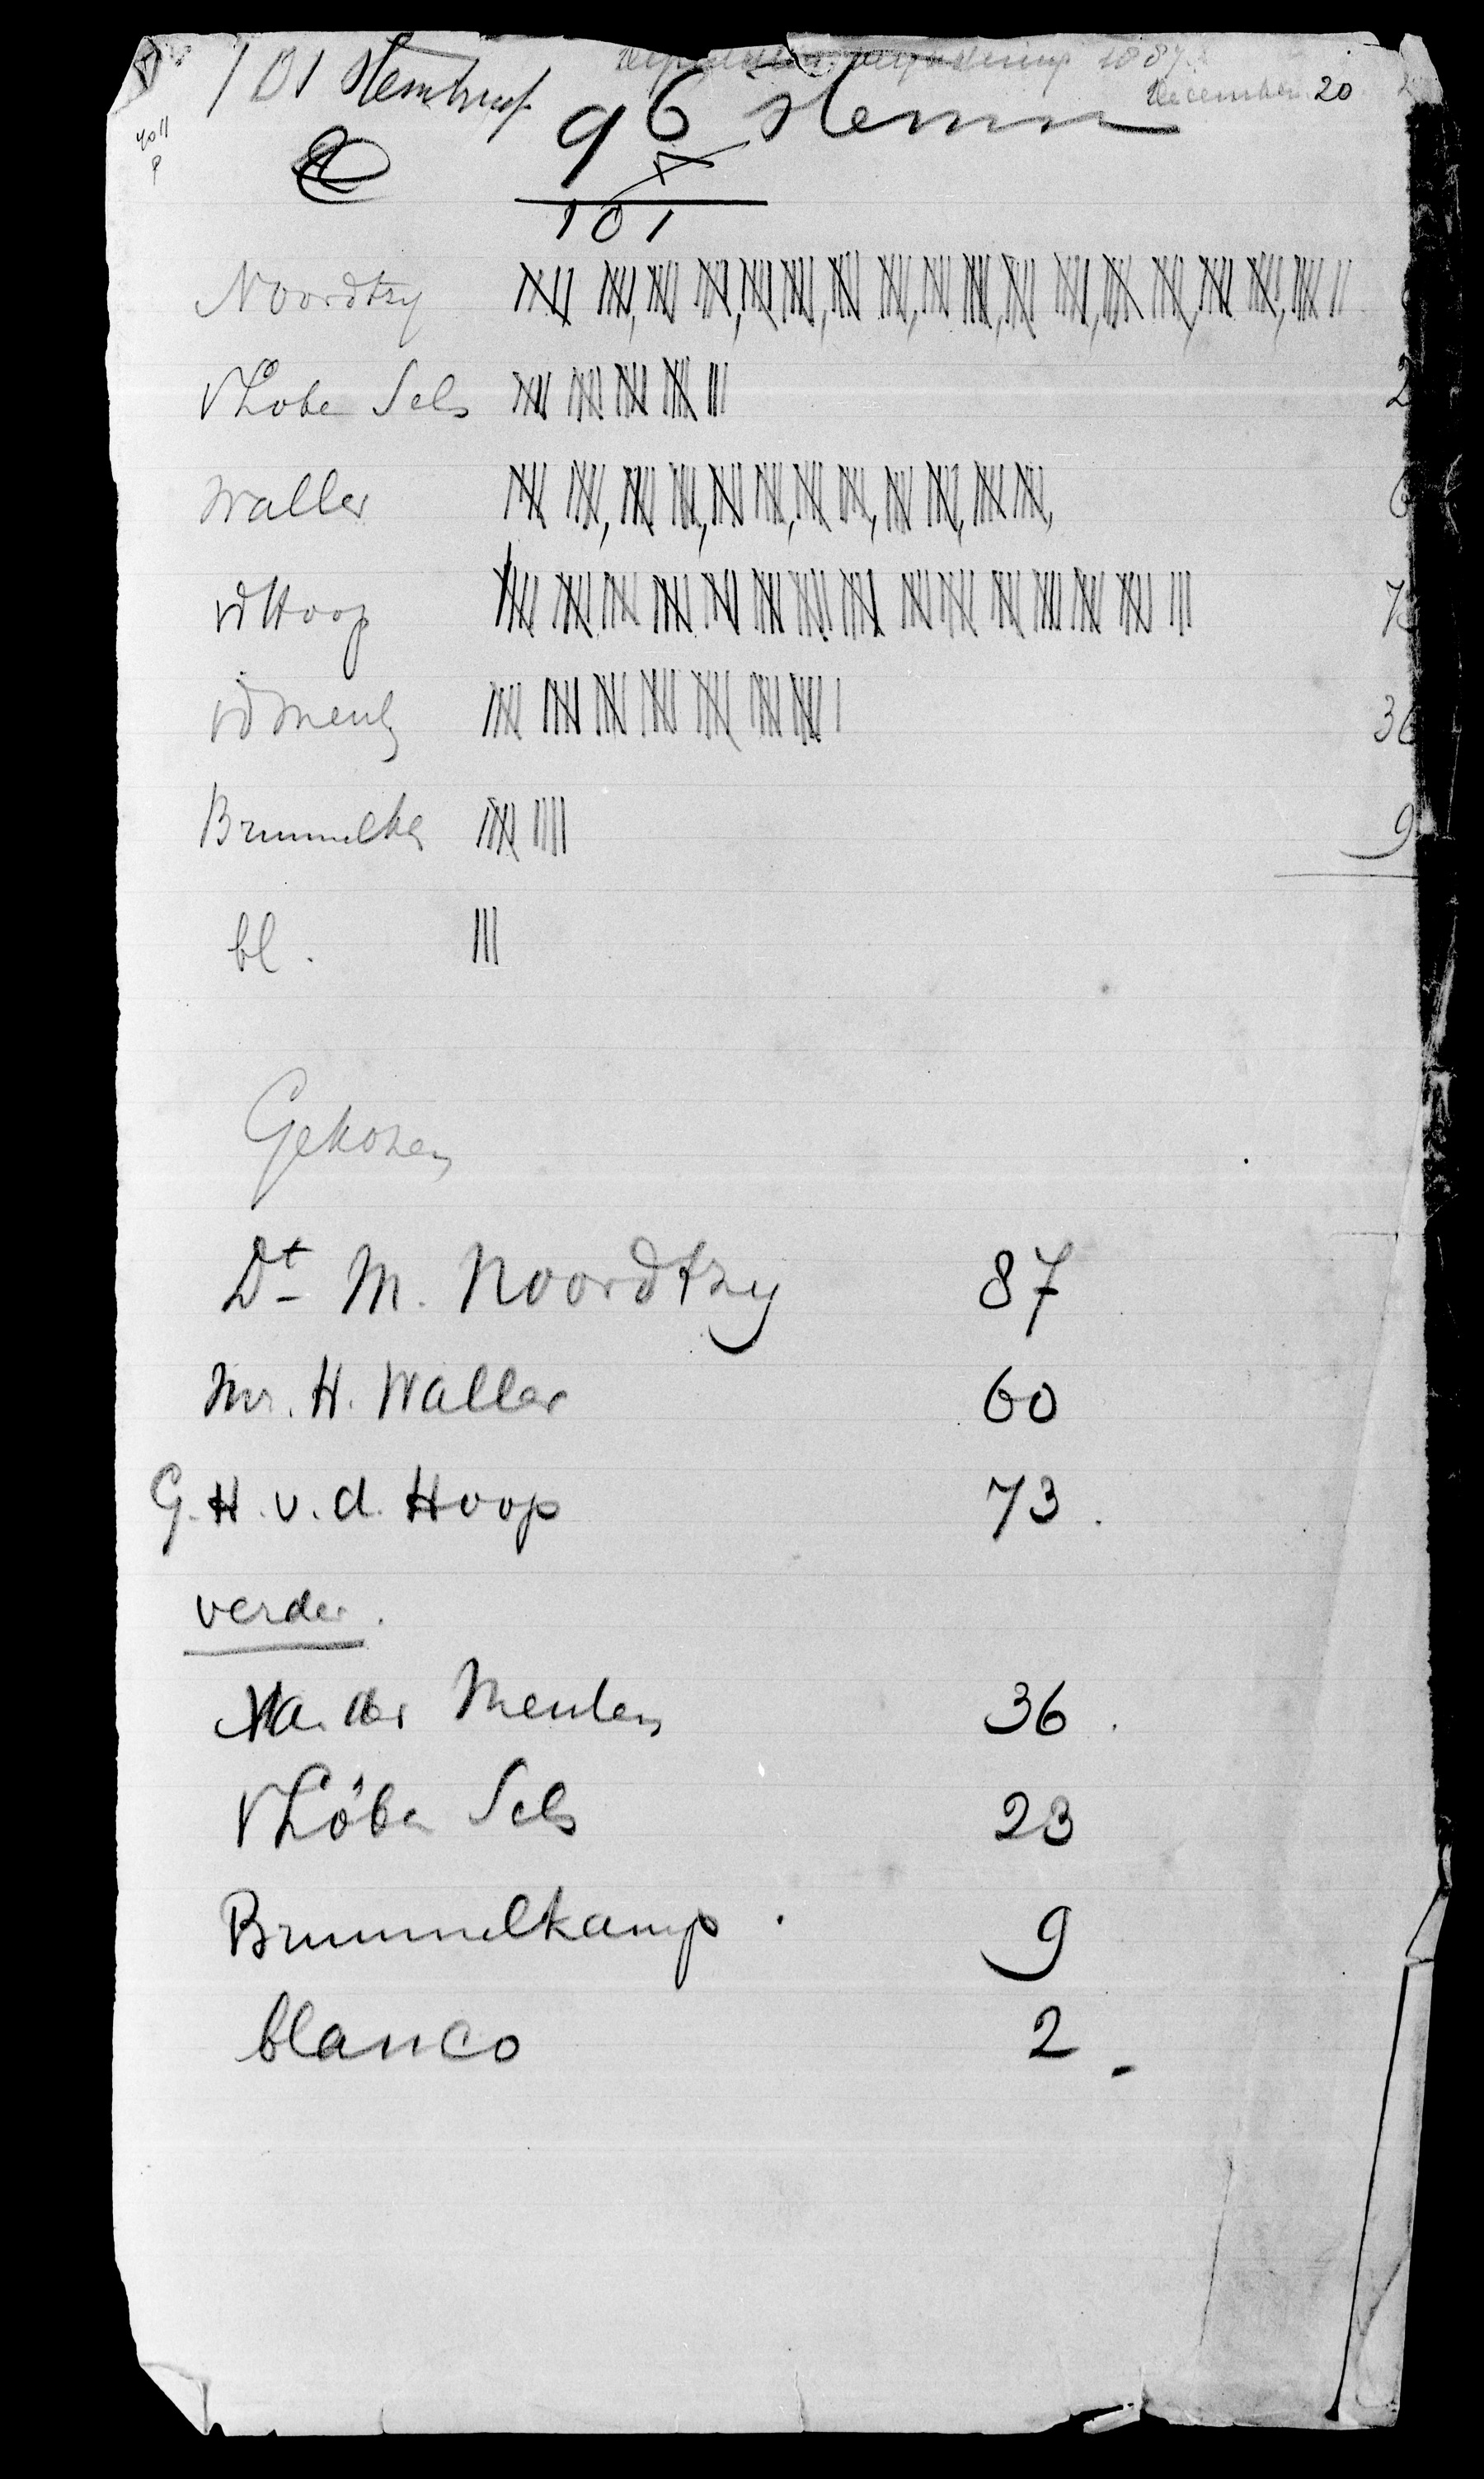 101 stembrief
1887
December 20
96 stemmen
101
Noordtzy
v Löbe Sels 2
Waller 6
vd Hoop 7
vd Meulen 36
Brummelka 9
bl.
Gekozen
Dt M. Noordtzy 87
Mr. H. Waller 60
G. H. v. d. Hoop 73.
verder.
Van der Meulen 36.
v Löben Sels 23
Brummelkamp. 9
blanco 2